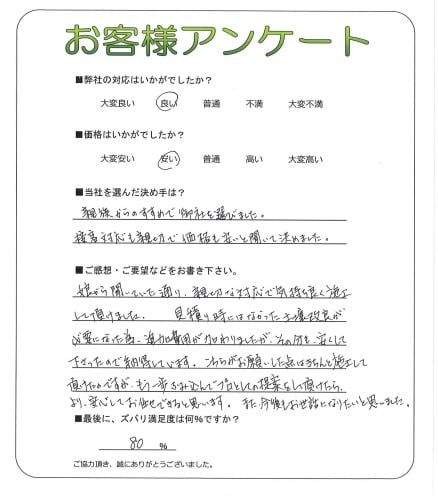 お客様アンケート
■弊社の対応はいかがでしたか？
大変良い 良い 普通 不満 大変不満
■価格はいかがでしたか？
大変安い 安い 普通 高い 大変高い
■当社を選んだ決め手は？
親族からのすすめで御社を選びました。
接客対応も親切で価格も安いと聞いて決めました。
■ご感想・ご要望などをお書き下さい。
娘から聞いていた通り、親切な対応で気持ち良く施工
して頂けました。 見積り時にはなかった土壌改良が
必要になった為、追加費用が加わりましたが、その分も安くして
下さったので納得しています。こちらがお願いした点はきちんと施工して
頂けたのですが、もう一歩ふみ込んでプロとしての提案をして頂けたら、
より、安心してお任せできると思います。また今後もお世話になりたいと思いました。
■最後に、ズバリ満足度は何％ですか？
80 %
ご協力頂き、誠にありがとうございました。